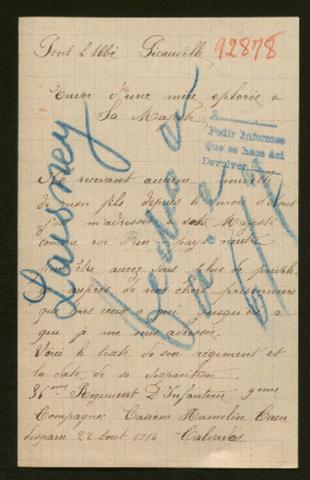 Pont L'Abbé Picauville 92878
Envoi d'une mère éplorée a
Sa Majesté
Pedir Informes
que se hace así
Devolver
Lausney
Ne recevant aucune nouvelle
de mon fils depuis le mois d'Aout
m'adresser votre Majesté
comme roi d'un pays neutre
peut être aurez vous plus de
auprès de nos chers prisonniers
que ceux a qui jusque a
que je me suis adressée
Voici le texte de son régiment et
la date de sa disparition
36eme Régiment D'Infanterie 9eme
Compagnie Caserne Hamelin Caen
disparu 22 Aout 1914 Calvados